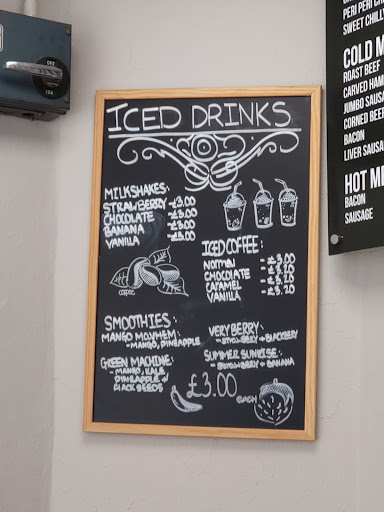 OFF
ICED DRINKS
MILKSHAKES:
STRAWBERRY -£3.00
CHOCOLATE -£3.00
BANANA -£3.00
VANILLA -£3.00
COFFEE
ICED COFFEE:
NORMAL - £3.00
CHOCOLATE - £3.20
CARAMEL - £3.20
VANILLA - £3.20
SMOOTHIES:
MANGO MAYHEM:
- MANGO, PINEAPPLE
GREEN MACHINE:
- MANGO, KALE
PINEAPPLE +
FLACK SEEDS
VERY BERRY:
- STRAWBERRY + BLACKBERRY
SUMMER SUNRISE:
- STRAWBERRY + BANANA
£3.00
EACH
PERI PERI
SWEET CHILLI
COLD M
ROAST BEEF
CARVED HAM
JUMBO SAUSA
CORNED BEEF
BACON
LIVER SAUSA
HOT ME
BACON
SAUSAGE